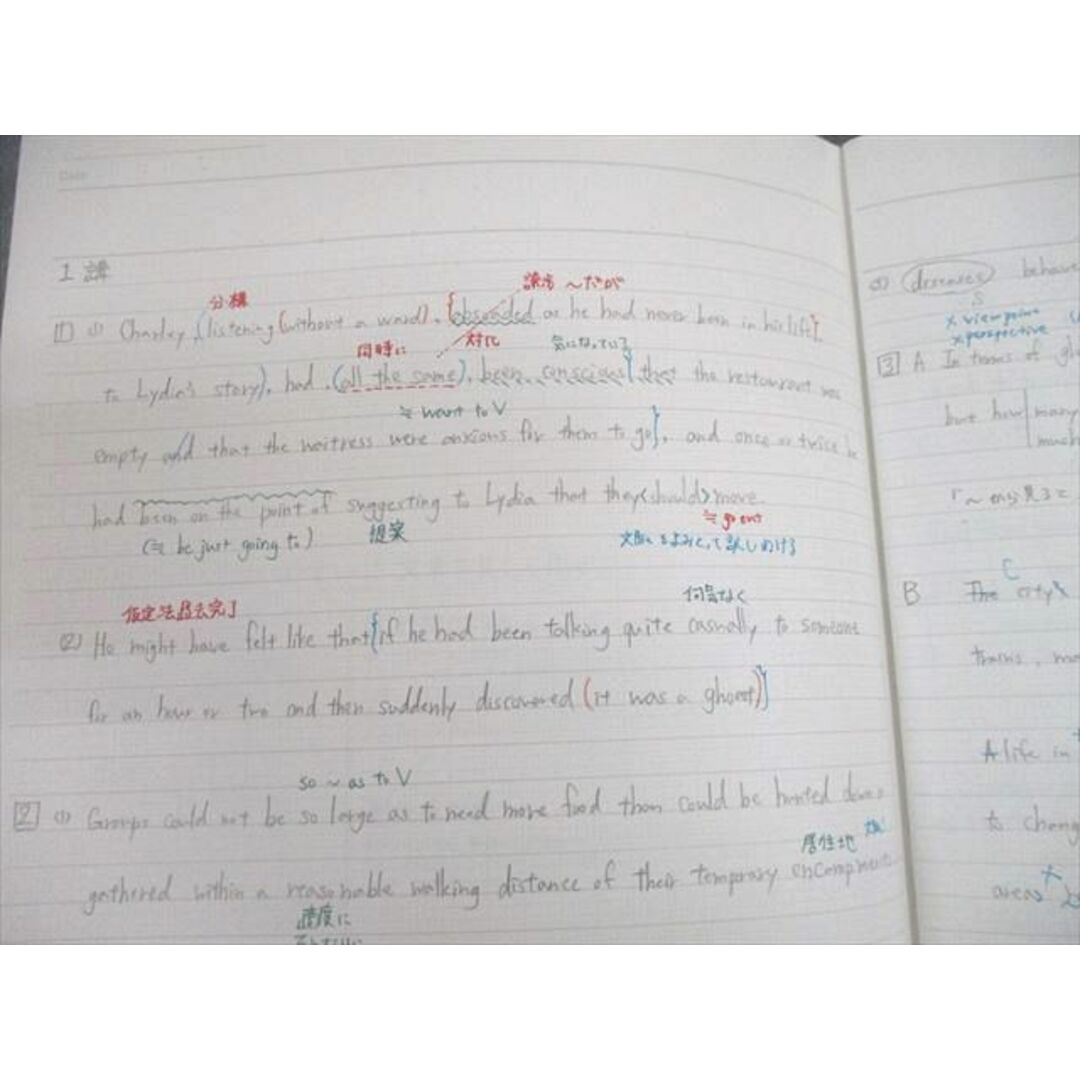 1講
分構
譲歩 〜だが
[1] (1) Charley, (listening (without a word), {absorded as he had never been in his life},
同時に
対比
気になっている
to Lydia's story), had (all the same), been conscious {that the restaurant was
≒ want to V
empty and that the waitress were anxious for them to go}, and once or twice he
had been on the point of suggesting to Lydia that they <should> move.
(≒ be just going to)
提案
≒ go out
仮定法過去完了
何気なく
(2) He might have felt like that {if he had been talking quite casually to someone
for an hour or two and then suddenly discovered (it was a ghost)}
so ~ as to V
[2] (1) Groups could not be so large as to need more food than could be hunted down
居住地
gathered within a reasonable walking distance of their temporary
適度に
behave
S
× viewpoint
× perspective
[3] A In terms of
but how many
much
「〜から見ると
C
B The city's
trains,
A life in
to chang
areas